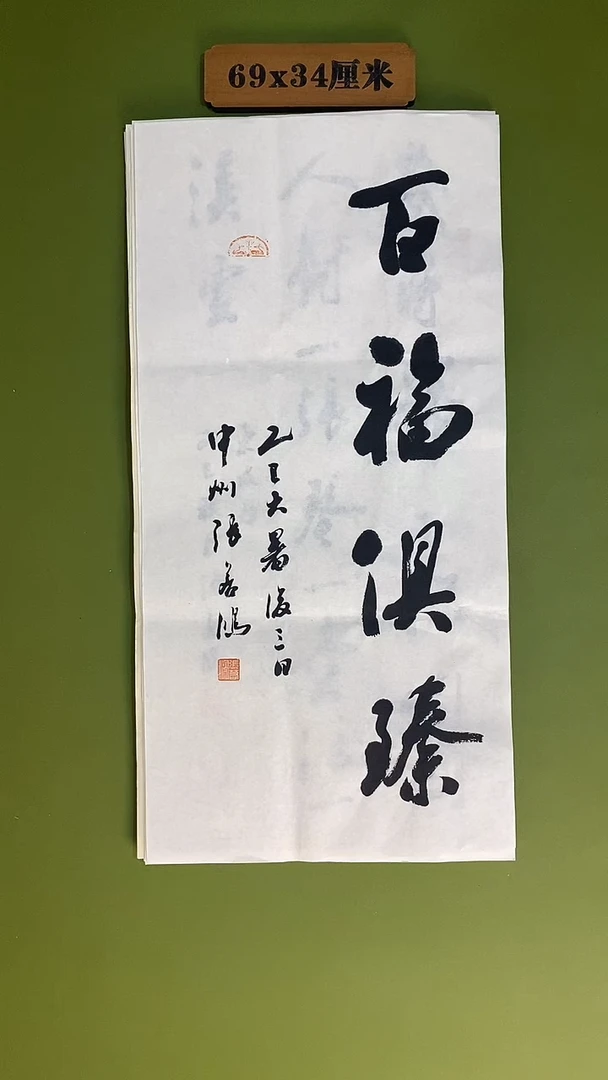 69x34厘米
百福俱臻
乙巳大暑后三日
中州张若鸿